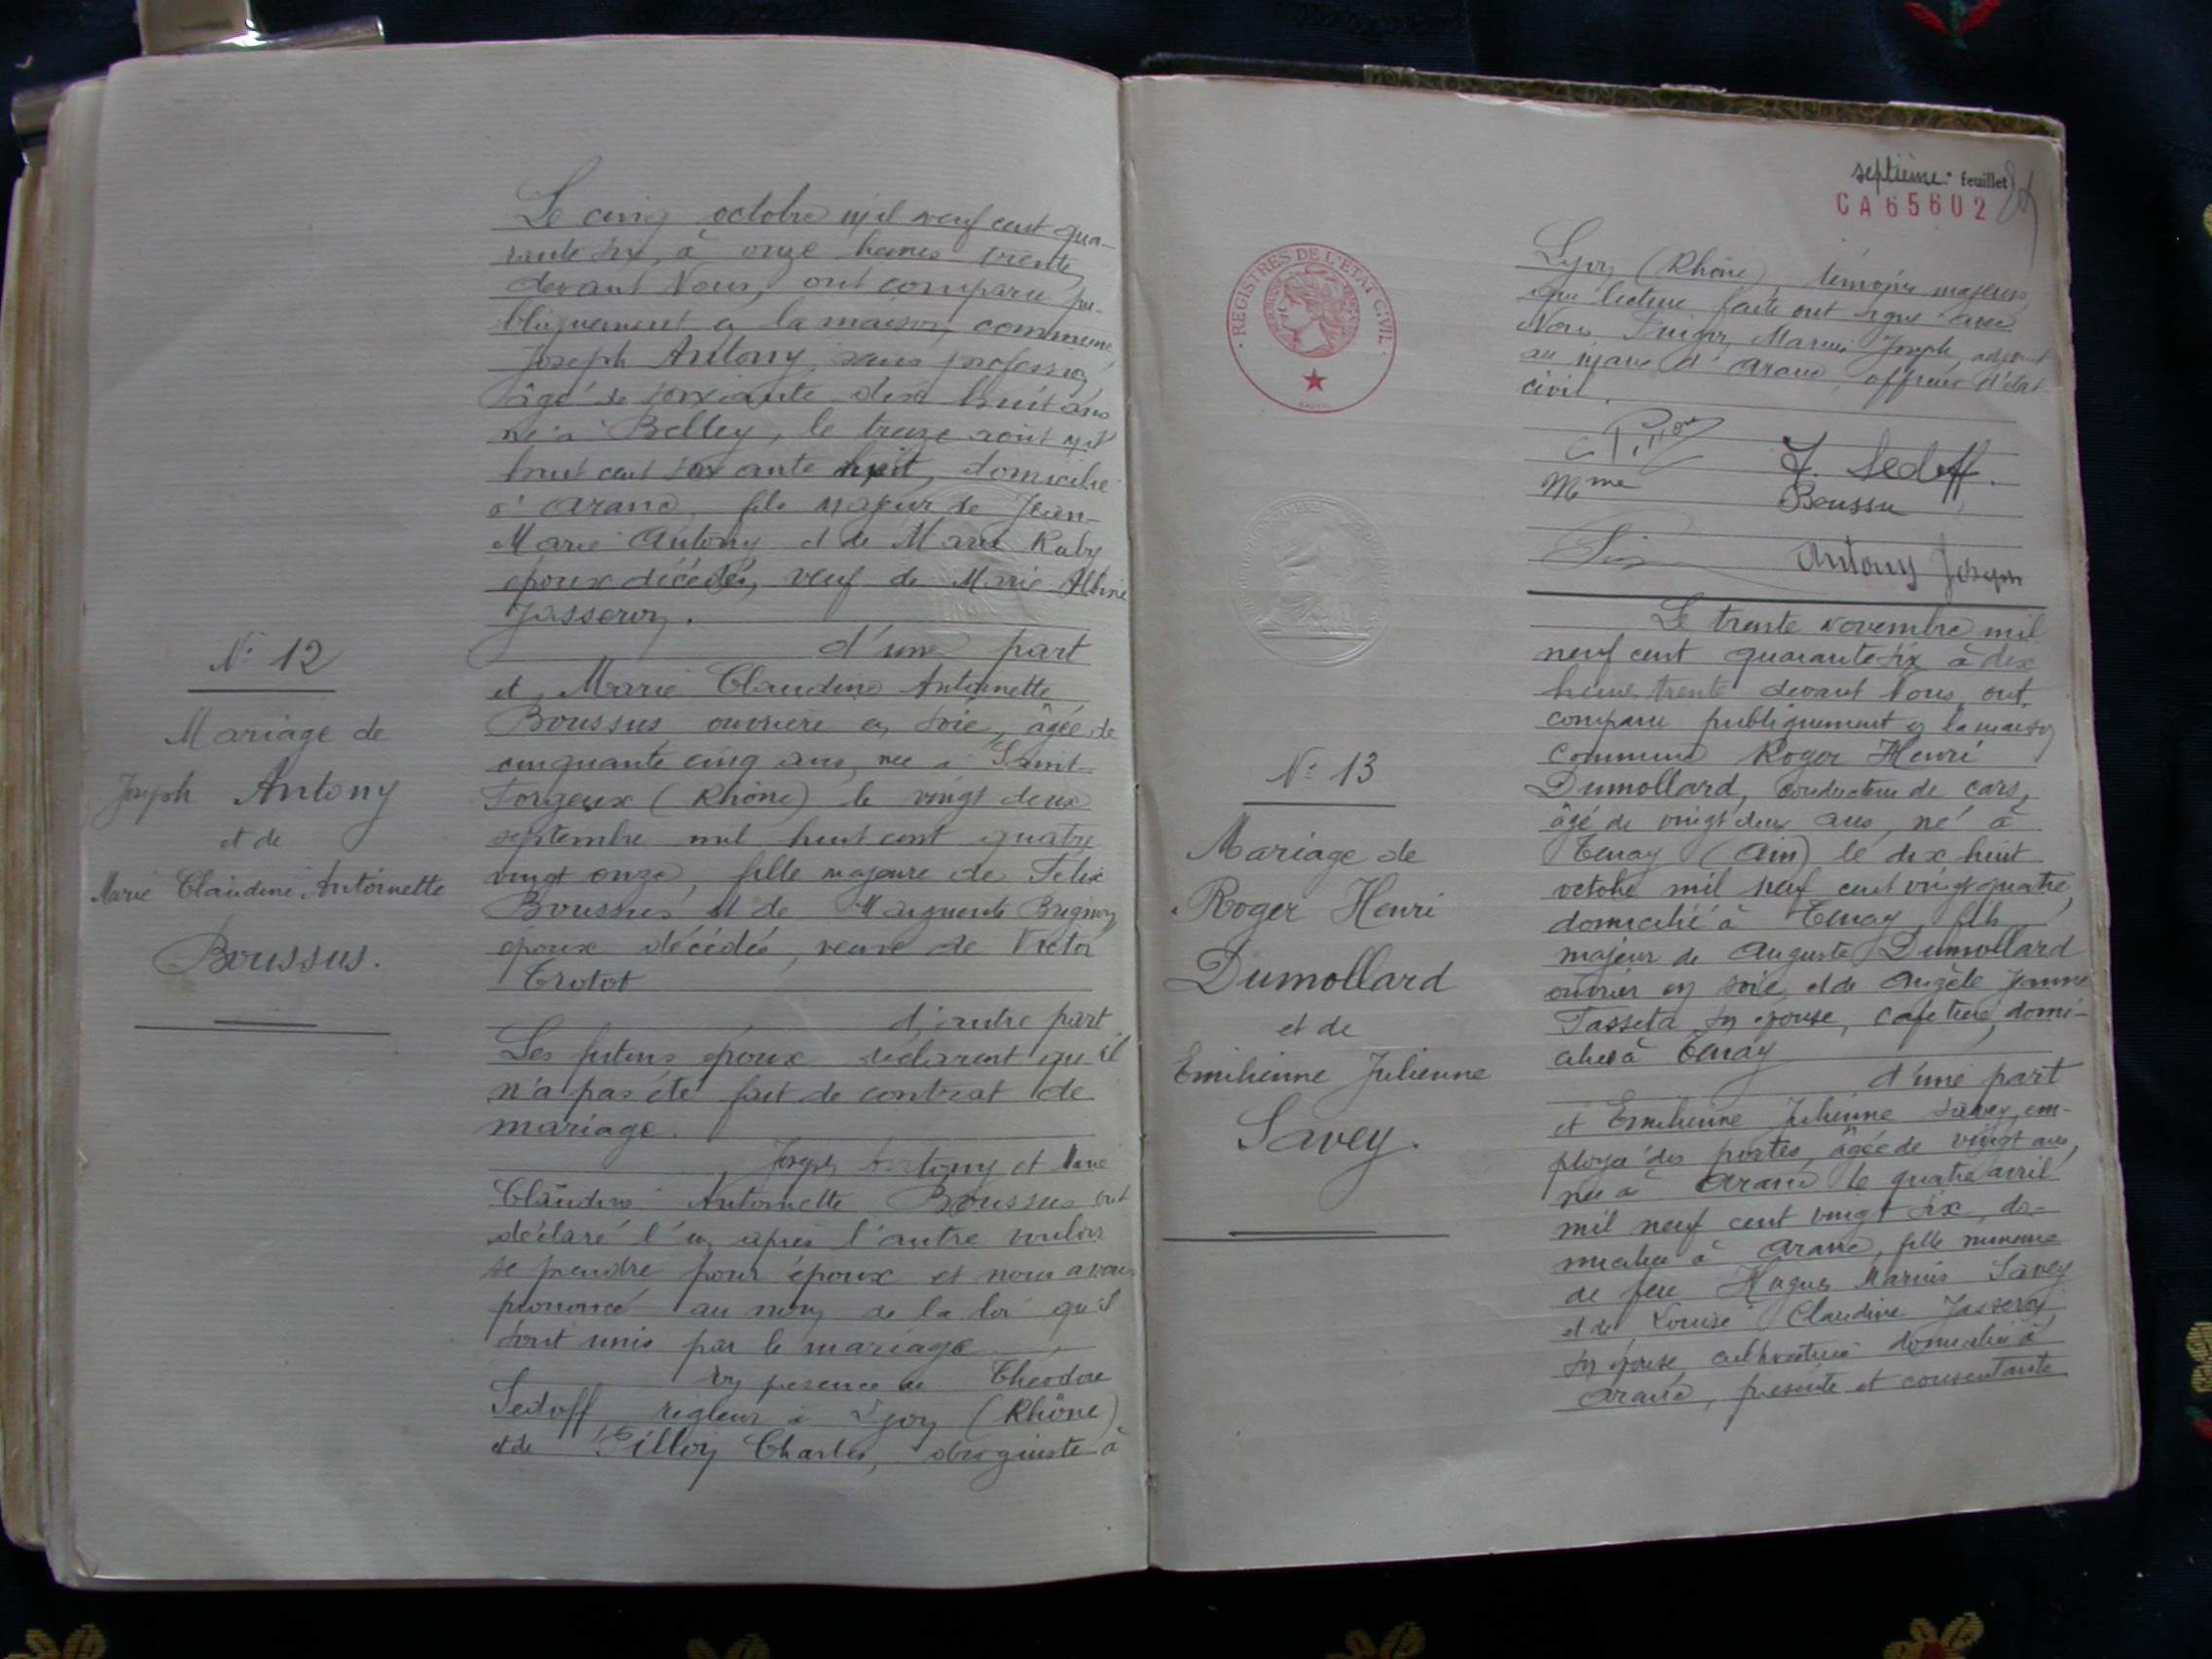 N° 12
Mariage de
Joseph Antony
et de
Marie Claudine Antoinette
Boussus.
Le cinq octobre mil neuf cent qua-
rante six, à onze heures trente
devant Nous, ont comparu pu-
bliquement en la maison commune
Joseph Antony, sans profession,
âgé de soixante dix huit ans
né à Belley, le treize août mil
huit cent soixante huit, domicilié
à Aranc, fils majeur de Jean-
Marie Antony et de Marie Ruby
époux décédés, veuf de Marie Albine
Jasseron.
d'une part
et Marie Claudine Antoinette
Boussus ouvrière en soie, âgée de
cinquante cinq ans, née à Saint-
Forgeux (Rhône) le vingt deux
septembre mil huit cent quatre
vingt onze, fille majeure de Félix
Boussus et de Marguerite
époux décédés, veuve de Victor
Trotot
d'autre part
Les futurs époux déclarent qu'il
n'a pas été fait de contrat de
mariage.
Joseph Antony et Marie
Claudine Antoinette Boussus ont
déclaré l'un après l'autre vouloir
se prendre pour époux et nous avons
prononcé au nom de la loi qu'il
sont unis par le mariage
En présence de Théodore
Sedoff, régleur à Lyon (Rhône)
et de Pillon Charles, droguiste à
septième feuillet
CA65602
REGISTRES DE L'ETAT CIVIL
Lyon (Rhône), témoins majeurs
que lecture faite ont signé avec
Nous, Marius Joseph, adjoint
au maire d'Aranc, officier d'état
civil.
C Pillon
T. Sedoff.
Mme Boussu
Antony Joseph
N° 13
Mariage de
Roger Henri
Dumollard
et de
Emilienne Julienne
Savey.
Le trente novembre mil
neuf cent quarante six à dix
heures trente devant Nous ont
comparu publiquement en la maison
commune Roger Henri
Dumollard, conducteur de cars,
âgé de vingt deux ans, né à
Tenay (Ain) le dix huit
octobre mil neuf cent vingt quatre,
domicilié à Tenay, fils
majeur de Auguste Dumollard
ouvrier en soie et de Angèle Jeanne
Tasseta son épouse, cafetière, domi-
ciliés à Tenay
d'une part
et Emilienne Julienne Savey, em-
ployée des postes, âgée de vingt ans,
née à Aranc le quatre avril
mil neuf cent vingt six, do-
miciliée à Aranc, fille mineure
de feu Hugues Marius Savey
et de Louise Claudine Jasseron
son épouse, cultivatrice domiciliée à
Aranc, présente et consentante